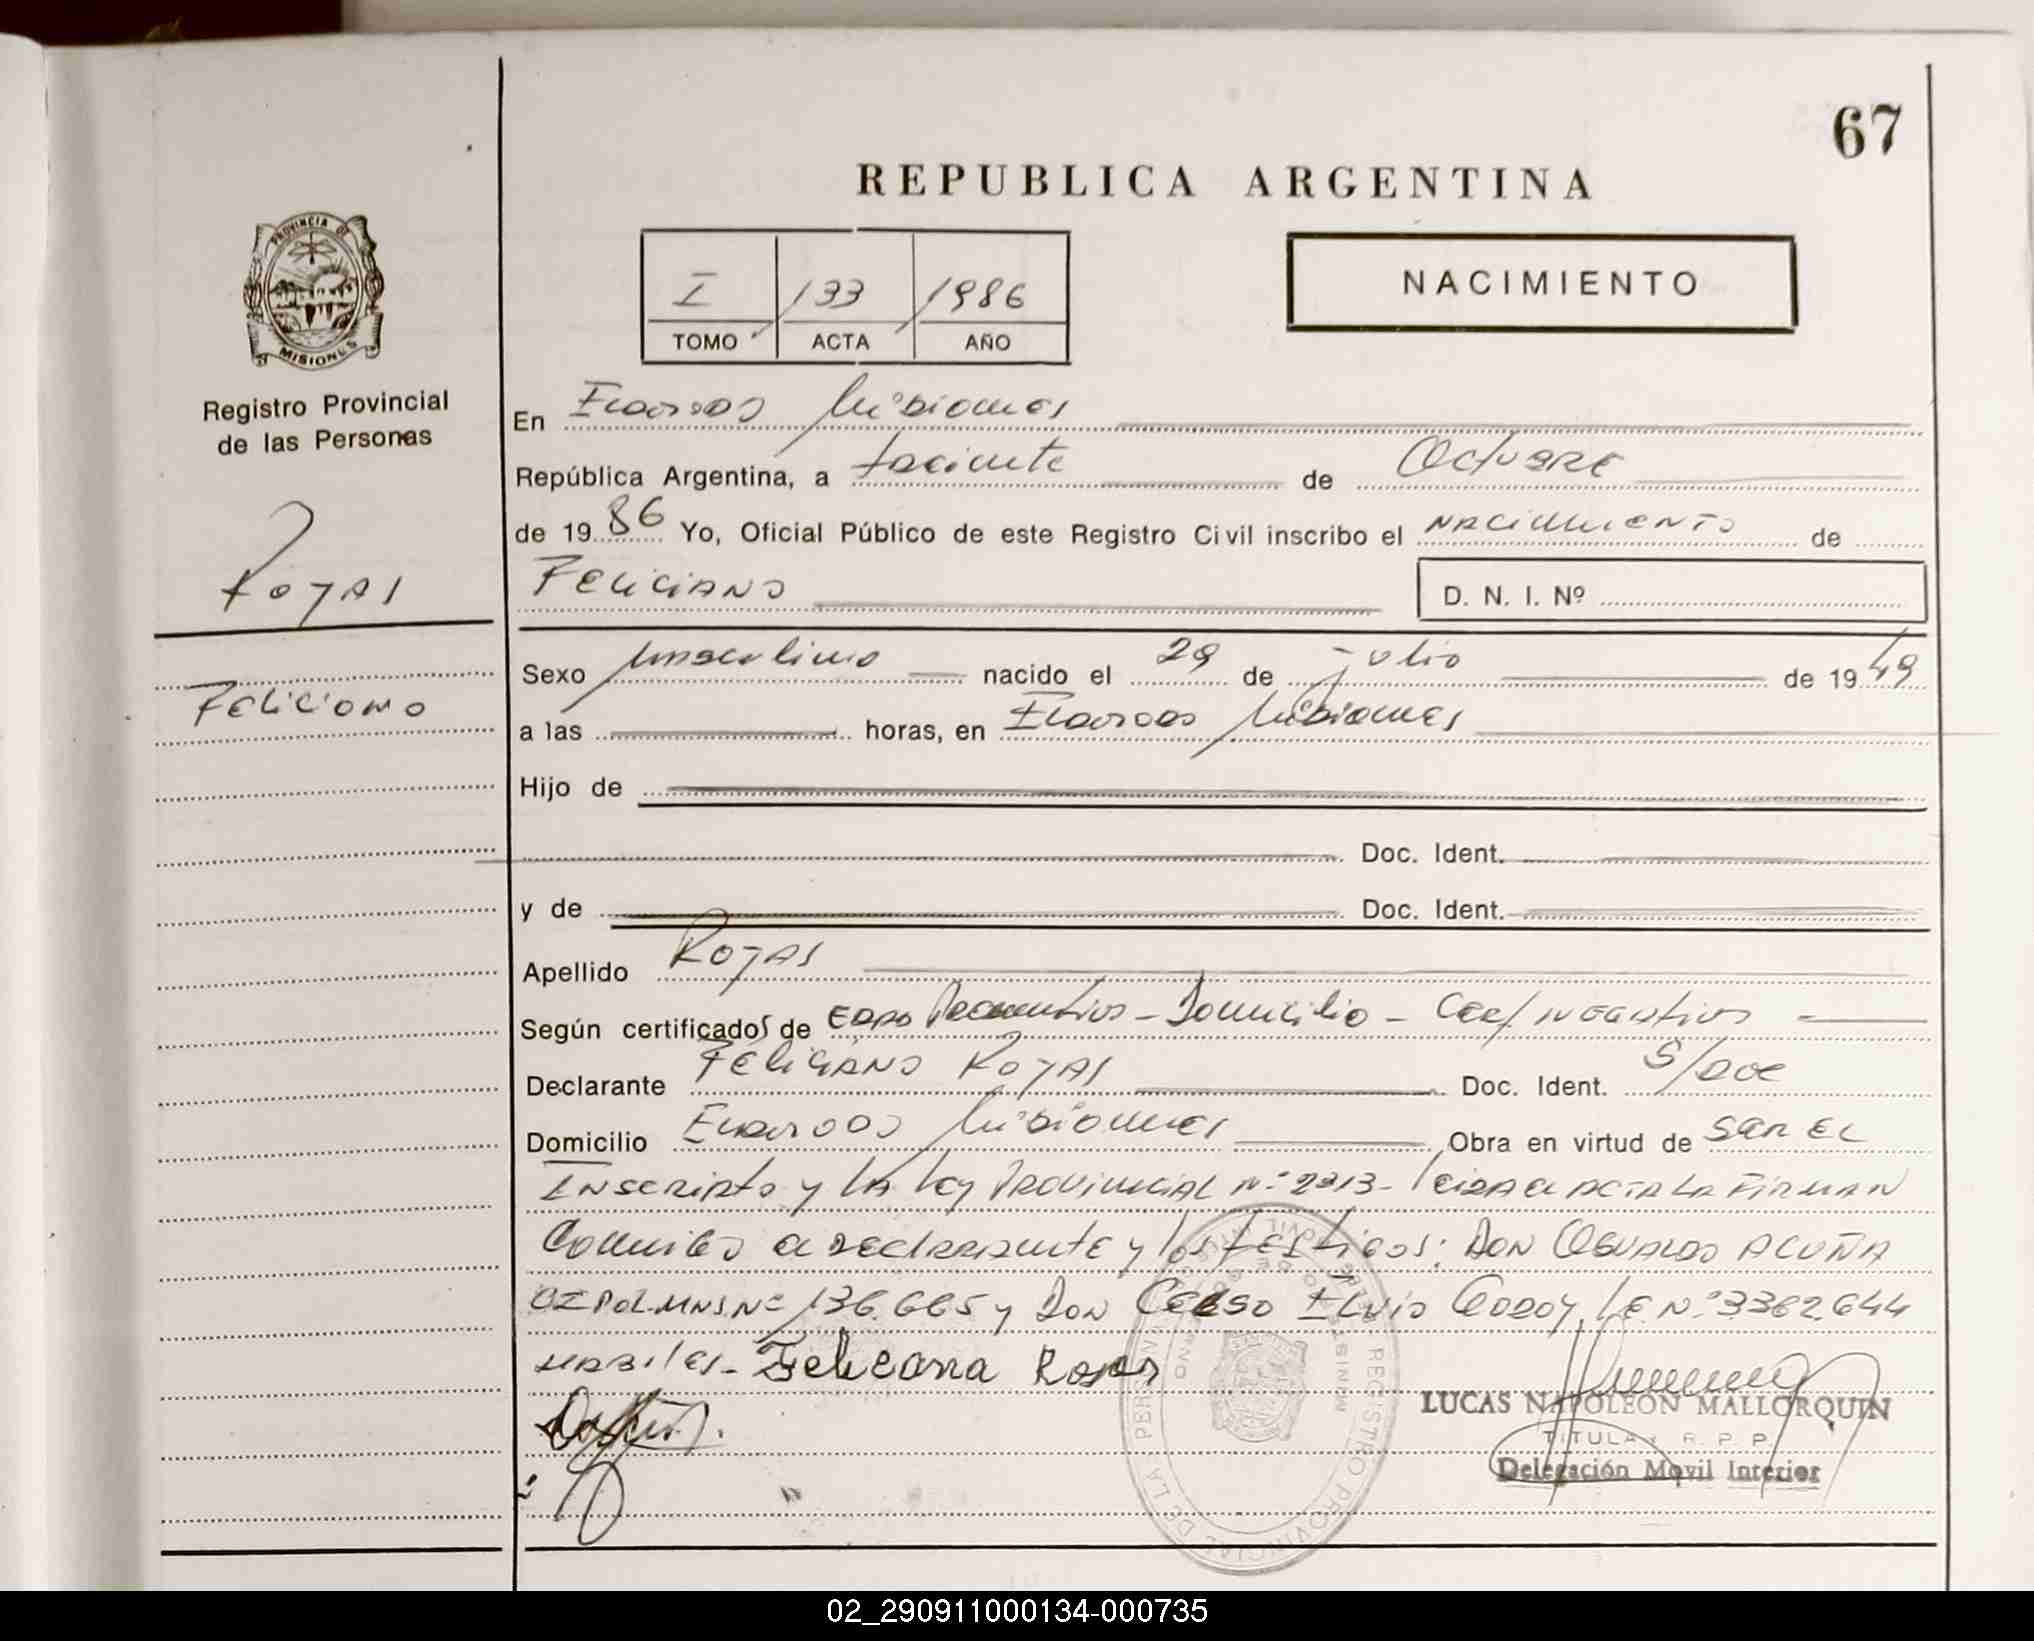 67
REPUBLICA ARGENTINA
PROVINCIA DE
MISIONES
I 133 1986
TOMO ACTA AÑO
NACIMIENTO
Registro Provincial
de las Personas
Rojas
Feliciano
En Eldorado Misiones
República Argentina, a de Octubre
de 1986 Yo, Oficial Público de este Registro Civil inscribo el nacimiento de
Feliciano D. N. I. Nº
Sexo masculino nacido el 29 de julio de 1949
a las horas, en Eldorado Misiones
Hijo de
Doc. Ident.
y de Doc. Ident.
Apellido Rojas
Según certificados de Domicilio - Cer/negativos
Declarante Feliciano Rojas Doc. Ident. S/doc
Domicilio Eldorado Misiones Obra en virtud de ser el
Inscripto y la Ley Provincial Nº 2313 - Leida el acta la firman
conmigo el declarante y los testigos: Don Osvaldo Acuña
CI Pol. Mns Nº 136.665 y Don Celso Elvio Godoy L.E. Nº 3362644
habiles - Feliciana Rojas
LUCAS NAPOLEON MALLORQUIN
TITULAR R. P. P.
Delegación Movil Interior
REGISTRO PROVINCIAL DE LA
02_290911000134-000735